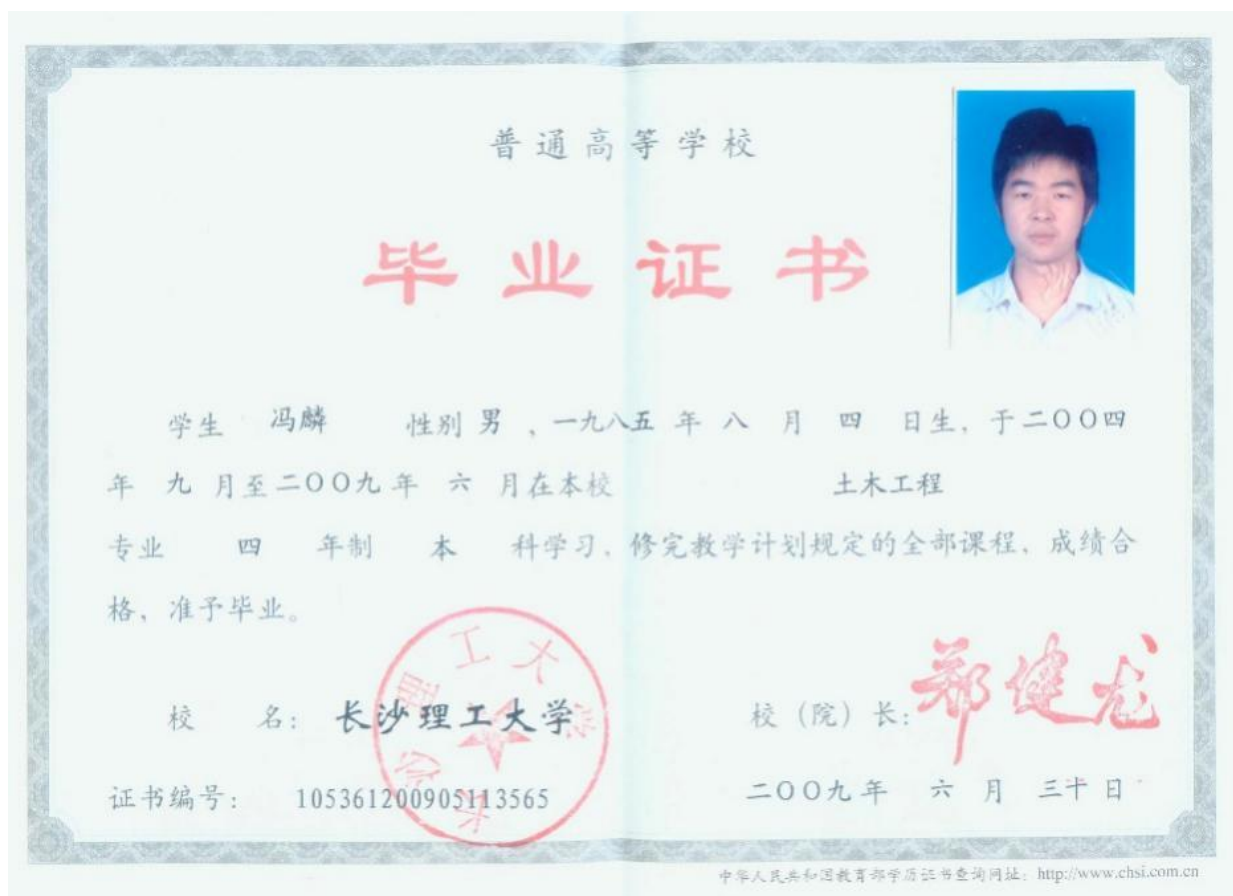 普通高等学校
毕业证书
学生 冯麟 性别 男 ，一九八五 年 八 月 四 日生，于二〇〇四
年 九 月至二〇〇九年 六 月在本校 土木工程
专业 四 年制 本 科学习，修完教学计划规定的全部课程，成绩合
格，准予毕业。
长沙理工大学
校 名： 长沙理工大学
校（院）长： 郑健龙
证书编号： 105361200905113565
二〇〇九年 六 月 三十日
中华人民共和国教育部学历证书查询网址：http://www.chsi.com.cn